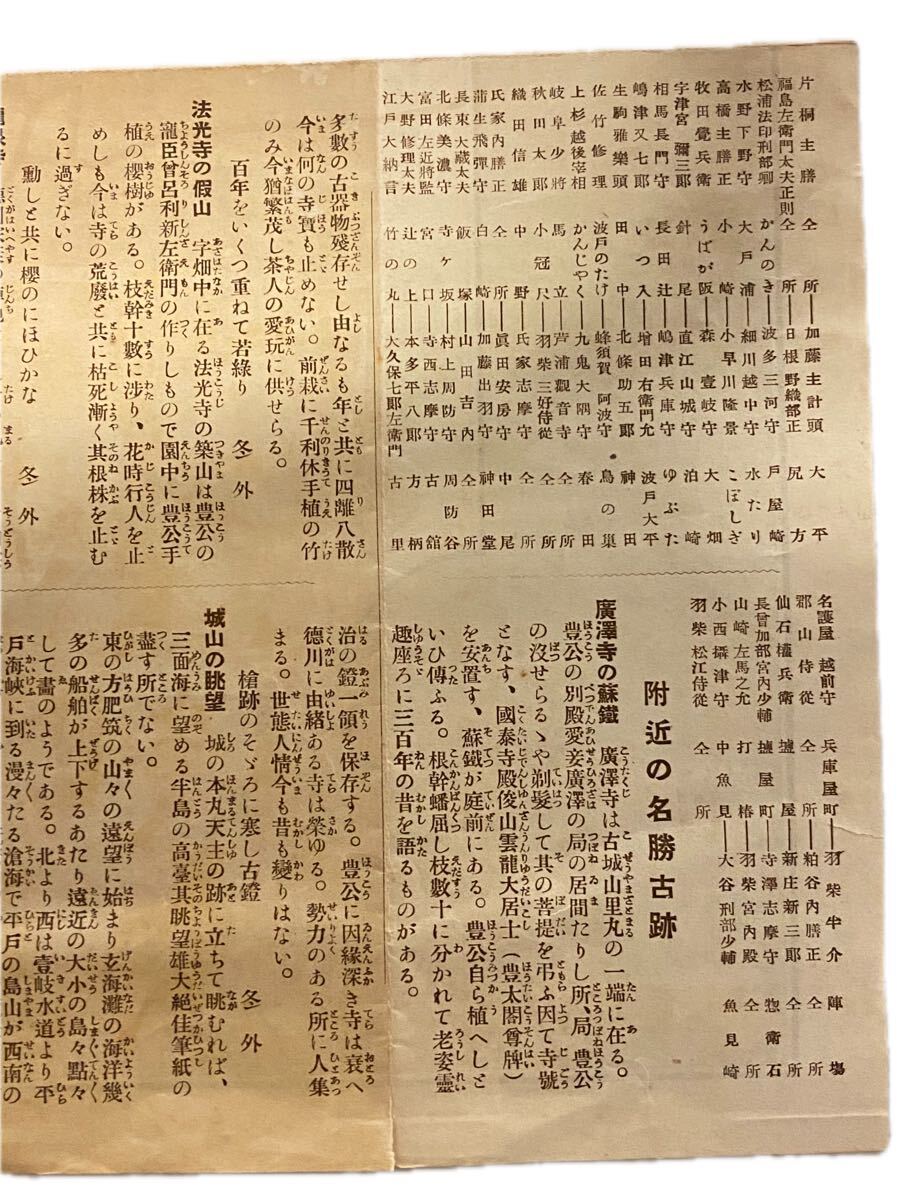 片桐主膳 仝所――加藤主計頭 大平
福島左衛門太夫正則 仝所――日根野織部正 尻方
松浦法印刑部卿 かんのき――波多三河守 戸屋崎
水野下野守 大戸浦――細川越中守 水たり
高橋主膳正 小崎――小早川隆景 こぼしぎ
牧田覺兵衛 うばが阪――森壹岐守 大畑
宇津宮彌三郎 針尾――直江山城守 泊崎
相馬長門守 長田辻――嶋津兵庫守 ゆぶた
嶋津又七郎 いつ入――増田右衛門允 波戸大平
生駒雅樂頭 田中――北條助五郎 神田
佐竹修理 波戸のたけ――蜂須賀阿波守 鳥の巣
上杉越後宰相 かんじやく――九鬼大隅守 春田
岐阜少將 馬立――芦浦觀音寺 仝所
秋田太郎 小冠尺――羽柴三好侍從 仝所
織田信雄 中野――氏家志摩守 仝所
氏家内膳正 仝所――眞田安房守 中尾
蒲生飛彈守 白崎――加藤出羽守 神田堂
長束大藏太夫 飯塚――山田出吉内 仝所
北條美濃守 寺ヶ坂――村上周防守 周防谷
富田左近將監 宮口――寺西志摩守 古舘
大野修理太夫 辻の上――本多平八郎 方柄
江戸大納言 竹の丸――大久保七郎左衛門 古里
名護屋越前守 兵庫屋町――羽柴半介 陣場
郡山侍從 仝所――粕谷内膳正 仝所
仙石權兵衛 壚屋――新庄新三郎 仝所
長曾加部宮内少輔 壚屋町――寺澤志摩守 惣衛石
山崎左馬之允 打椿――羽柴宮内殿 仝所
小西攝津守 中魚見――大谷刑部少輔 魚見崎
羽柴松江侍從 仝所
附近の名勝古跡
廣澤寺の蘇鐵 廣澤寺は古城山里丸の一端に在る。
豊公の別殿愛妾廣澤の局の居間たりし所、局豊公
の沒せらるゝや剃髮して其の菩提を弔ふ因て寺號
となす、國泰寺殿俊山雲龍大居士(豊太閤尊牌)
を安置す、蘇鐵が庭前にある。豊公自ら植へしと
いひ傳ふる。根幹蟠屈し枝數十に分かれて老姿靈
趣座ろに三百年の昔を語るものがある。
多數の古器物殘存せし由なるも年と共に四離八散
今は何の寺寶も止めない。前栽に千利休手植の竹
のみ今猶繁茂し茶人の愛玩に供せらる。
百年をいくつ重ねて若綠り 冬外
法光寺の假山 字畑中に在る法光寺の築山は豊公の
寵臣曾呂利新左衛門の作りしもので園中に豊公手
植の櫻樹がある。枝幹十數に涉り、花時行人を止
めしも今は寺の荒廢と共に枯死漸く其根株を止む
るに過ぎない。
動しと共に櫻のにほひかな 冬外
治の鐙一領を保存する。豊公に因緣深き寺は衰へ
德川に由緒ある寺は榮ゆる。勢力のある所に人集
まる。世態人情今も昔も變りはない。
槍跡のそゞろに寒し古鐙 冬外
城山の眺望 城の本丸天主の跡に立ちて眺むれば、
三面海に望める半島の高臺其眺望雄大絶佳筆紙の
盡す所でない。
東の方肥筑の山々の遠望に始まり玄海灘の海洋幾
多の船舶が上下するあたり遠近の大小の島々點々
して畵のようである。北より西は壹岐水道より平
戸海峽に到る漫々たる滄海で平戸の島山が西南の